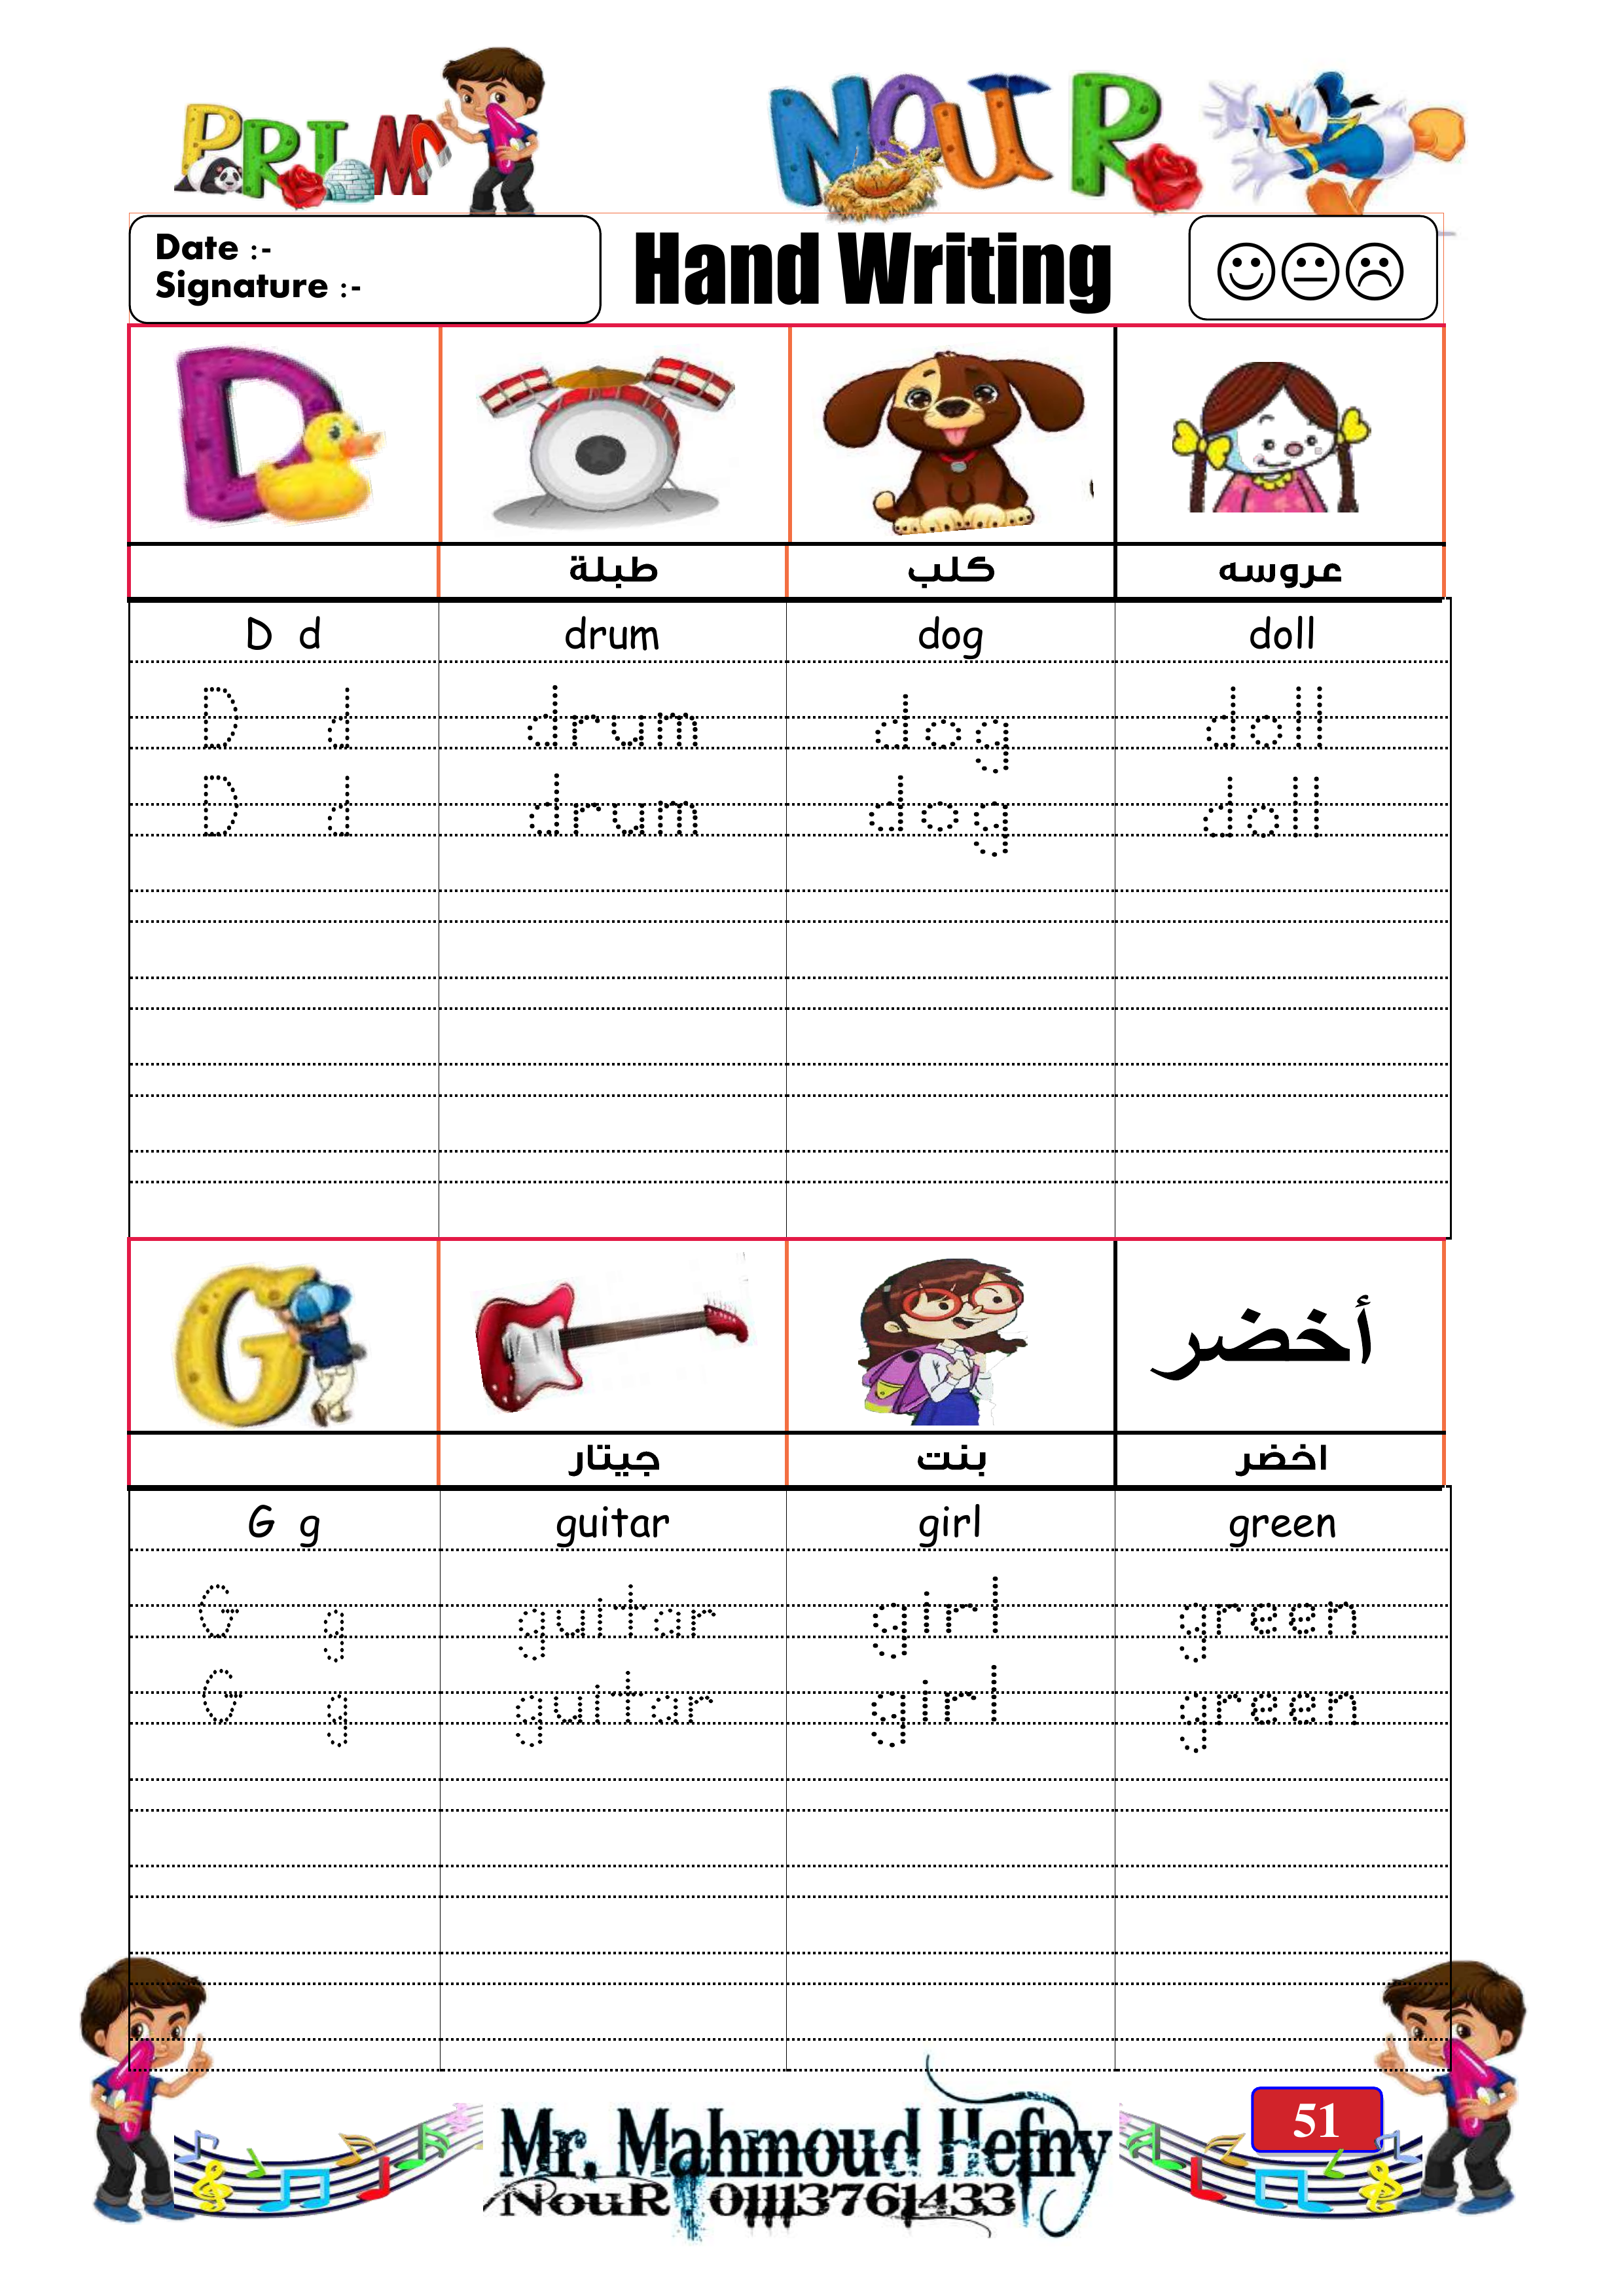 PRIM 1
NOUR
Date :-
Signature :-
Hand Writing
D
طبلة كلب عروسه
D d drum dog doll
D d drum dog doll
D d drum dog doll
G أخضر
جيتار بنت اخضر
G g guitar girl green
G g guitar girl green
G g guitar girl green
51
Mr. Mahmoud Hefny
NouR. 01113761433